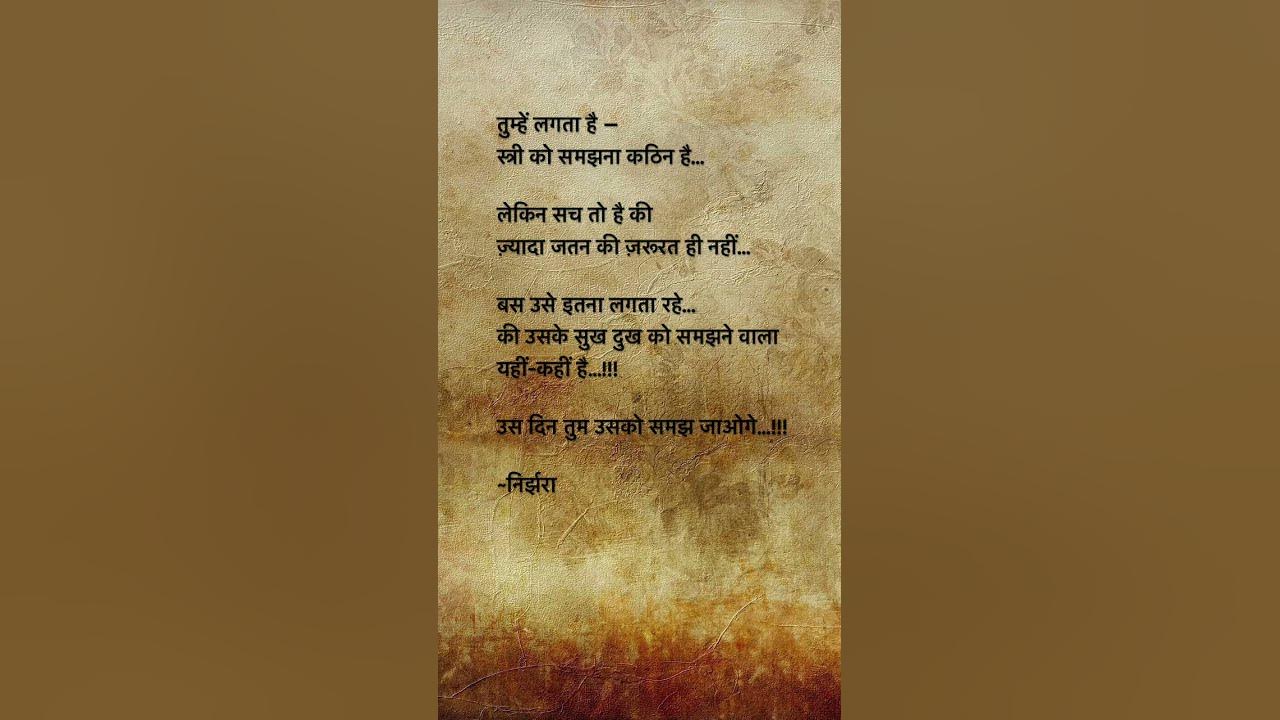 तुम्हें लगता है –
स्त्री को समझना कठिन है...
लेकिन सच तो है की
ज़्यादा जतन की ज़रूरत ही नहीं...
बस उसे इतना लगता रहे...
की उसके सुख दुख को समझने वाला
यहीं-कहीं है...!!!
उस दिन तुम उसको समझ जाओगे...!!!
~निर्झरा